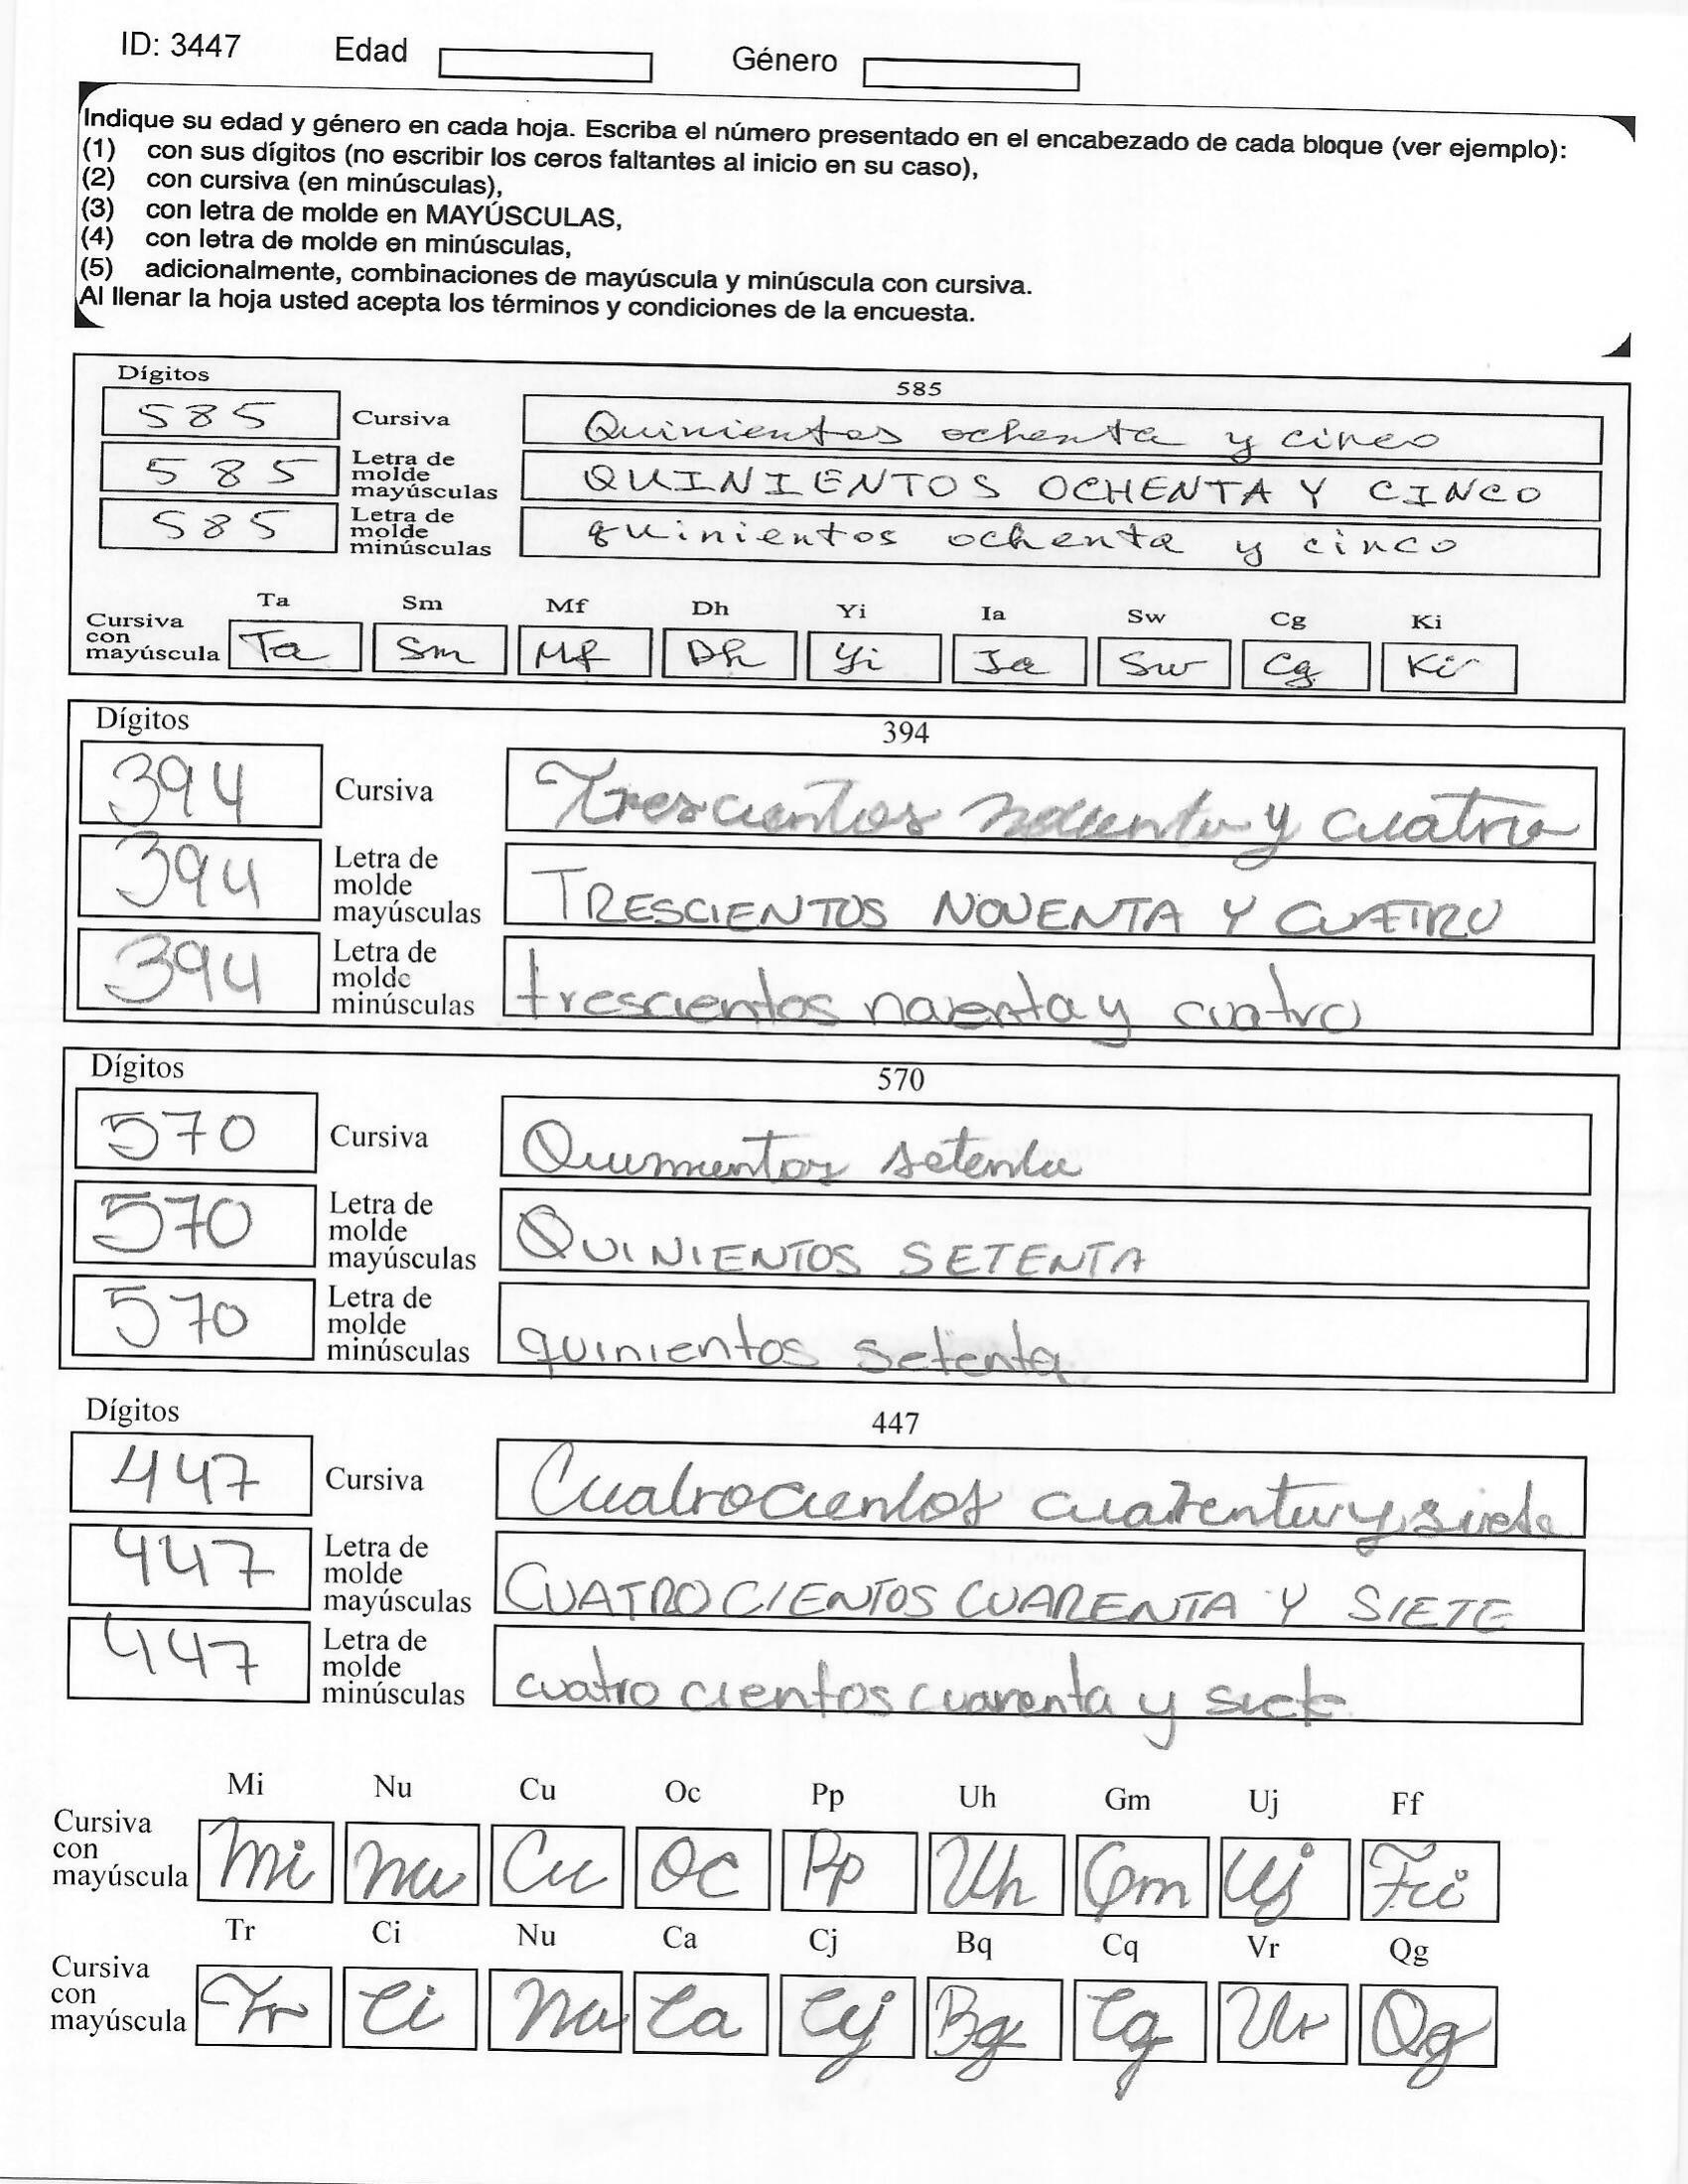 ID: 3447 Edad Género
Indique su edad y género en cada hoja. Escriba el número presentado en el encabezado de cada bloque (ver ejemplo):
(1) con sus dígitos (no escribir los ceros faltantes al inicio en su caso),
(2) con cursiva (en minúsculas),
(3) con letra de molde en MAYÚSCULAS,
(4) con letra de molde en minúsculas,
(5) adicionalmente, combinaciones de mayúscula y minúscula con cursiva.
Al llenar la hoja usted acepta los términos y condiciones de la encuesta.
Dígitos 585
585 Cursiva Quinientos ochenta y cinco
585 Letra de molde mayúsculas QUINIENTOS OCHENTA Y CINCO
585 Letra de molde minúsculas quinientos ochenta y cinco
Ta Sm Mf Dh Yi Ia Sw Cg Ki
Cursiva con mayúscula Ta Sm Mf Dh Yi Ia Sw Cg Ki
Dígitos 394
394 Cursiva Trescientos noventa y cuatro
394 Letra de molde mayúsculas TRESCIENTOS NOVENTA Y CUATRO
394 Letra de molde minúsculas trescientos noventa y cuatro
Dígitos 570
570 Cursiva Quinientos setenta
570 Letra de molde mayúsculas QUINIENTOS SETENTA
570 Letra de molde minúsculas quinientos setenta
Dígitos 447
447 Cursiva Cuatrocientos cuarenta y siete
447 Letra de molde mayúsculas CUATROCIENTOS CUARENTA Y SIETE
447 Letra de molde minúsculas cuatro cientos cuarenta y siete
Mi Nu Cu Oc Pp Uh Gm Uj Ff
Cursiva con mayúscula Mi Nu Cu Oc Pp Uh Gm Uj
Tr Ci Nu Ca Cj Bq Cq Vr Qg
Cursiva con mayúscula Tr Ci Nu Ca Cj Bq Cq Vr Qg